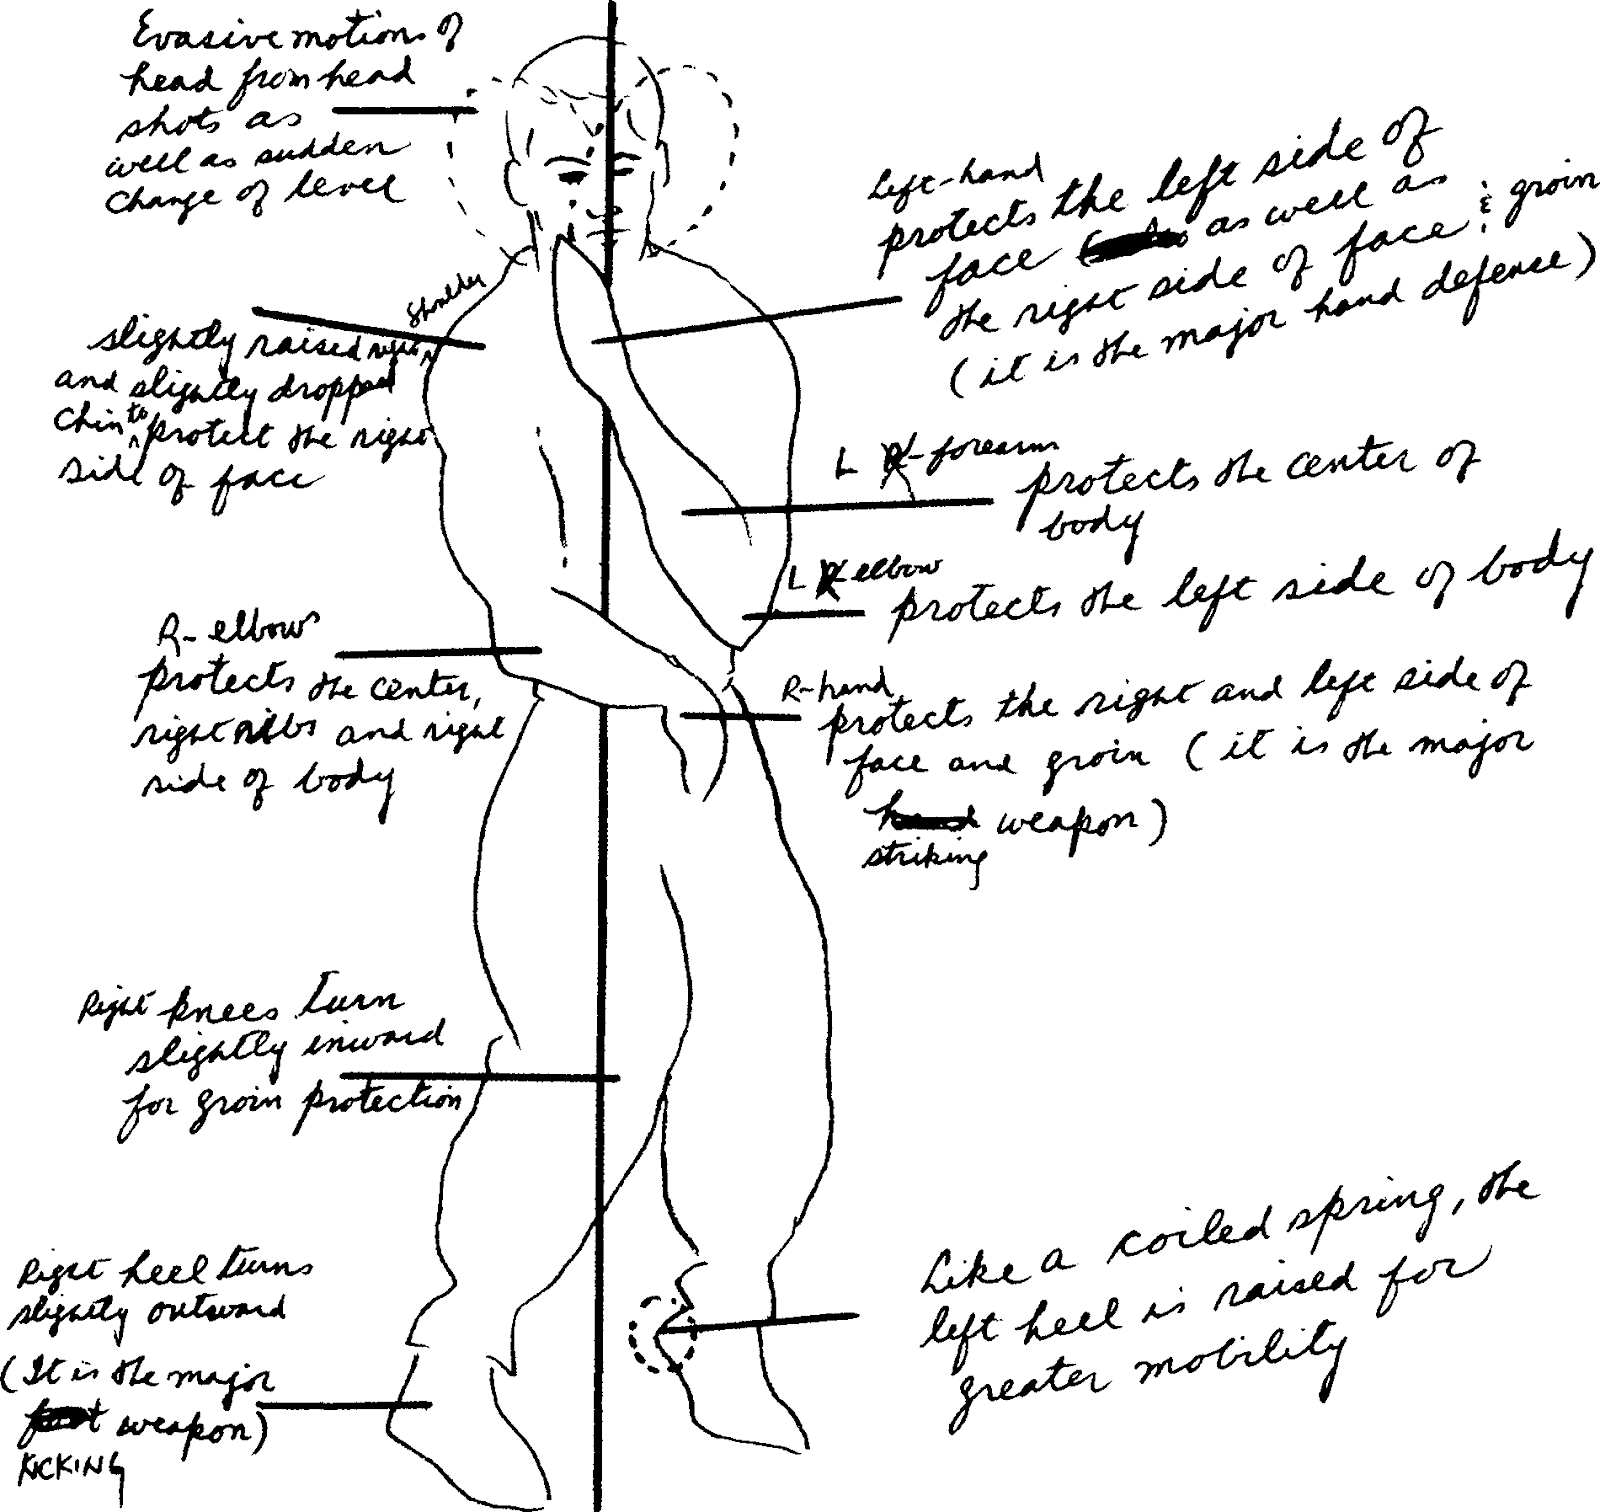 Evasive motions of
head from head
shots as
well as sudden
change of level
shoulder
slightly raised right
and slightly dropped
chin to protect the right
side of face
R-elbow
protects the center,
right ribs and right
side of body
Right knees turn
slightly inward
for groin protection
Right heel turns
slightly outward
(It is the major
foot weapon)
KICKING
Left-hand
protects the left side of
face as well as
the right side of face & groin
(it is the major hand defense)
L R-forearm
protects the center of
body
L R elbow
protects the left side of body
R-hand
protects the right and left side of
face and groin (it is the major
hand weapon)
striking
Like a coiled spring, the
left heel is raised for
greater mobility